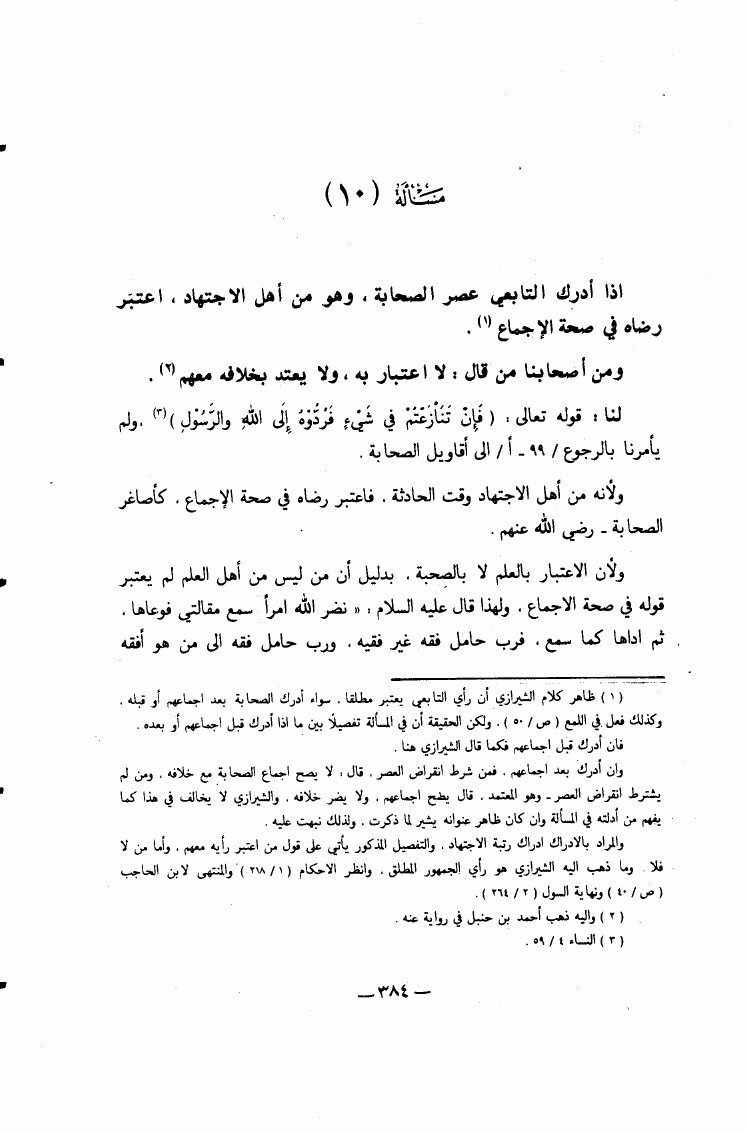 مَسْأَلَة ( ١٠ )
اذا أدرك التابعي عصر الصحابة ، وهو من أهل الاجتهاد ، اعتبَر
رضاه في صحة الإجماع (١) .
ومن أصحابنا من قال : لا اعتبار به ، ولا يعتد بخلافه معهم (٢) .
لنا : قوله تعالى : ( فَإِنْ تَنَازَعْتُمْ في شَيْءٍ فَرُدُّوهُ إِلَى اللهِ والرَّسُوْلِ )(٣) ، ولم
يأمرنا بالرجوع / ٩٩ ـ أ / الى أقاويل الصحابة .
ولأنه من أهل الاجتهاد وقت الحادثة . فاعتبر رضاه في صحة الإجماع ، كأصاغر
الصحابة ـ رضي الله عنهم .
ولأن الاعتبار بالعلم لا بالصحبة . بدليل أن من ليس من أهل العلم لم يعتبر
قوله في صحة الاجماع . ولهذا قال عليه السلام : « نضر الله امرأ سمع مقالتي فوعاها .
ثم اداها كما سمع . فرب حامل فقه غير فقيه . ورب حامل فقه الى من هو أفقه
( ١ ) ظاهر كلام الشيرازي أن رأي التابعي يعتبر مطلقا . سواء أدرك الصحابة بعد اجماعهم أو قبله .
وكذلك فعل في اللمع ( ص / ٥٠ ) . ولكن الحقيقة أن في المسألة تفصيلاً بين ما اذا أدرك قبل اجماعهم أو بعده .
فان أدرك قبل اجماعهم فكما قال الشيرازي هنا .
وان أدرك بعد اجماعهم . فمن شرط انقراض العصر . قال : لا يصح اجماع الصحابة مع خلافه . ومن لم
يشترط انقراض العصر ـ وهو المعتمد . قال يصح اجماعهم . ولا يضر خلافه . والشيرازي لا يخالف في هذا كما
يفهم من أدلته في المسألة وان كان ظاهر عنوانه يشير لما ذكرت . ولذلك نبهت عليه .
والمراد بالادراك ادراك رتبة الاجتهاد . والتفصيل المذكور يأتي على قول من اعتبر رأيه معهم . وأما من لا
فلا . وما ذهب اليه الشيرازي هو رأي الجمهور المطلق . وانظر الاحكام ( ١ / ٢١٨ ) والمنتهى لابن الحاجب
( ص / ٤٠ ) ونهاية السول ( ٢ / ٢٦٤ ) .
( ٢ ) واليه ذهب أحمد بن حنبل في رواية عنه .
( ٣ ) النساء ٤ / ٥٩ .
— ٣٨٤ —